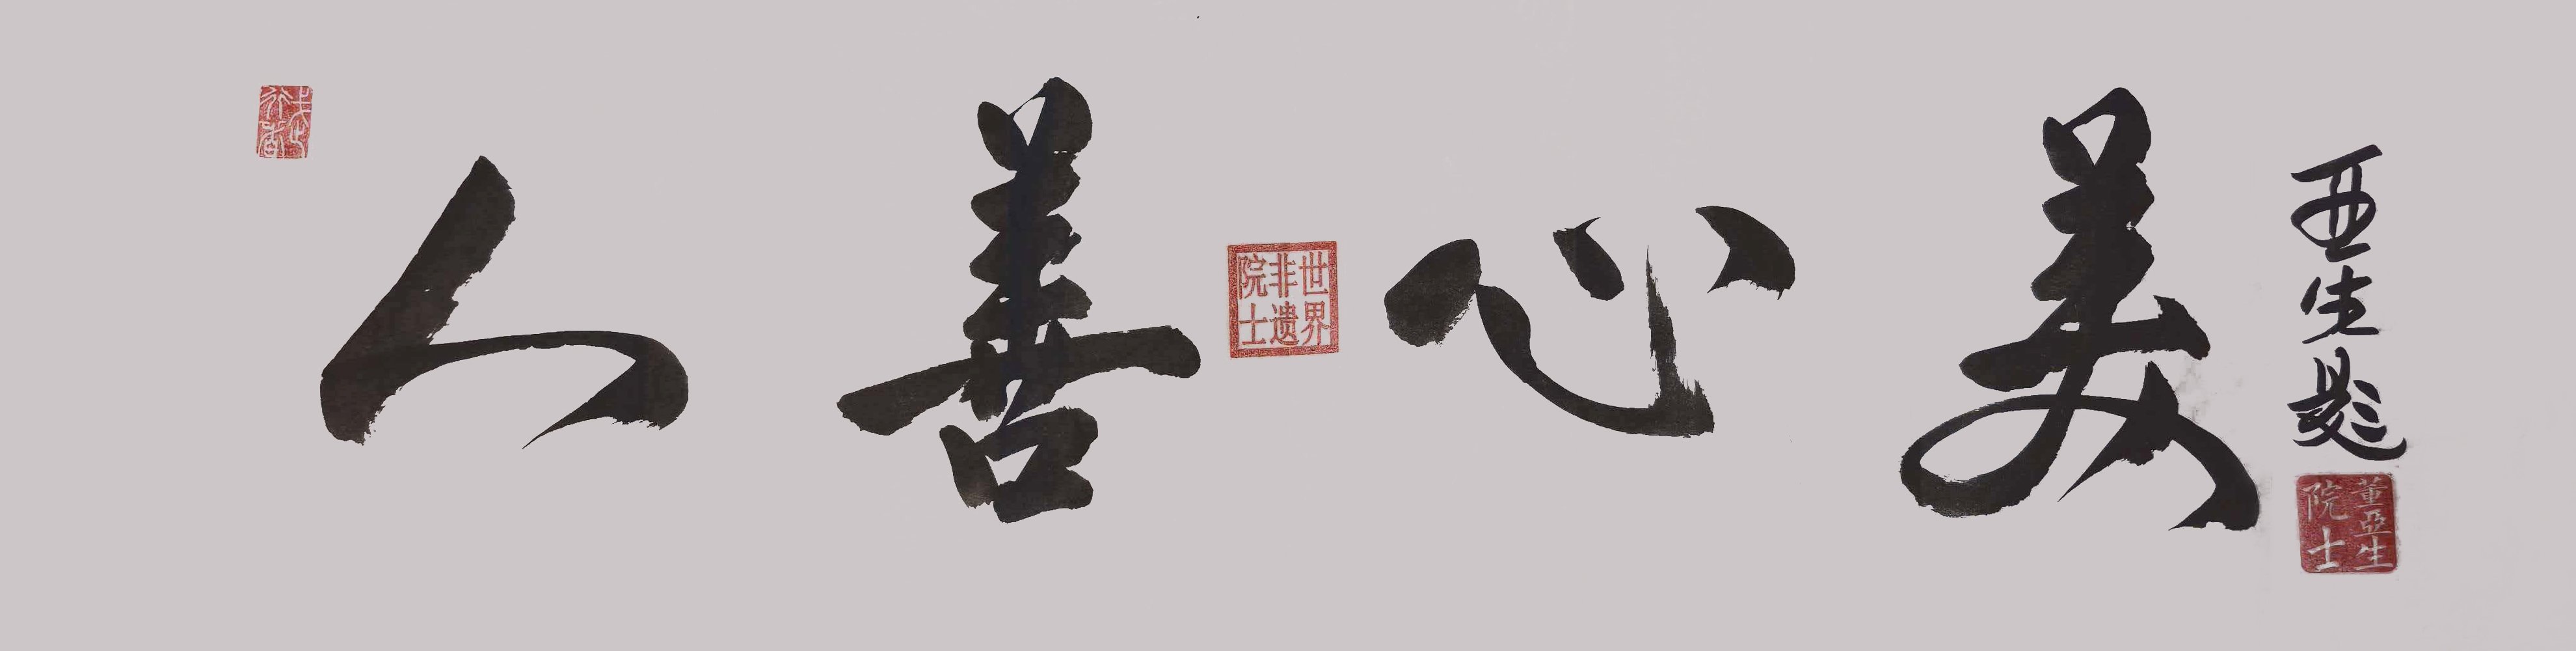 人善心美
世界
非遗
院士
亚生题
董亞生
院士